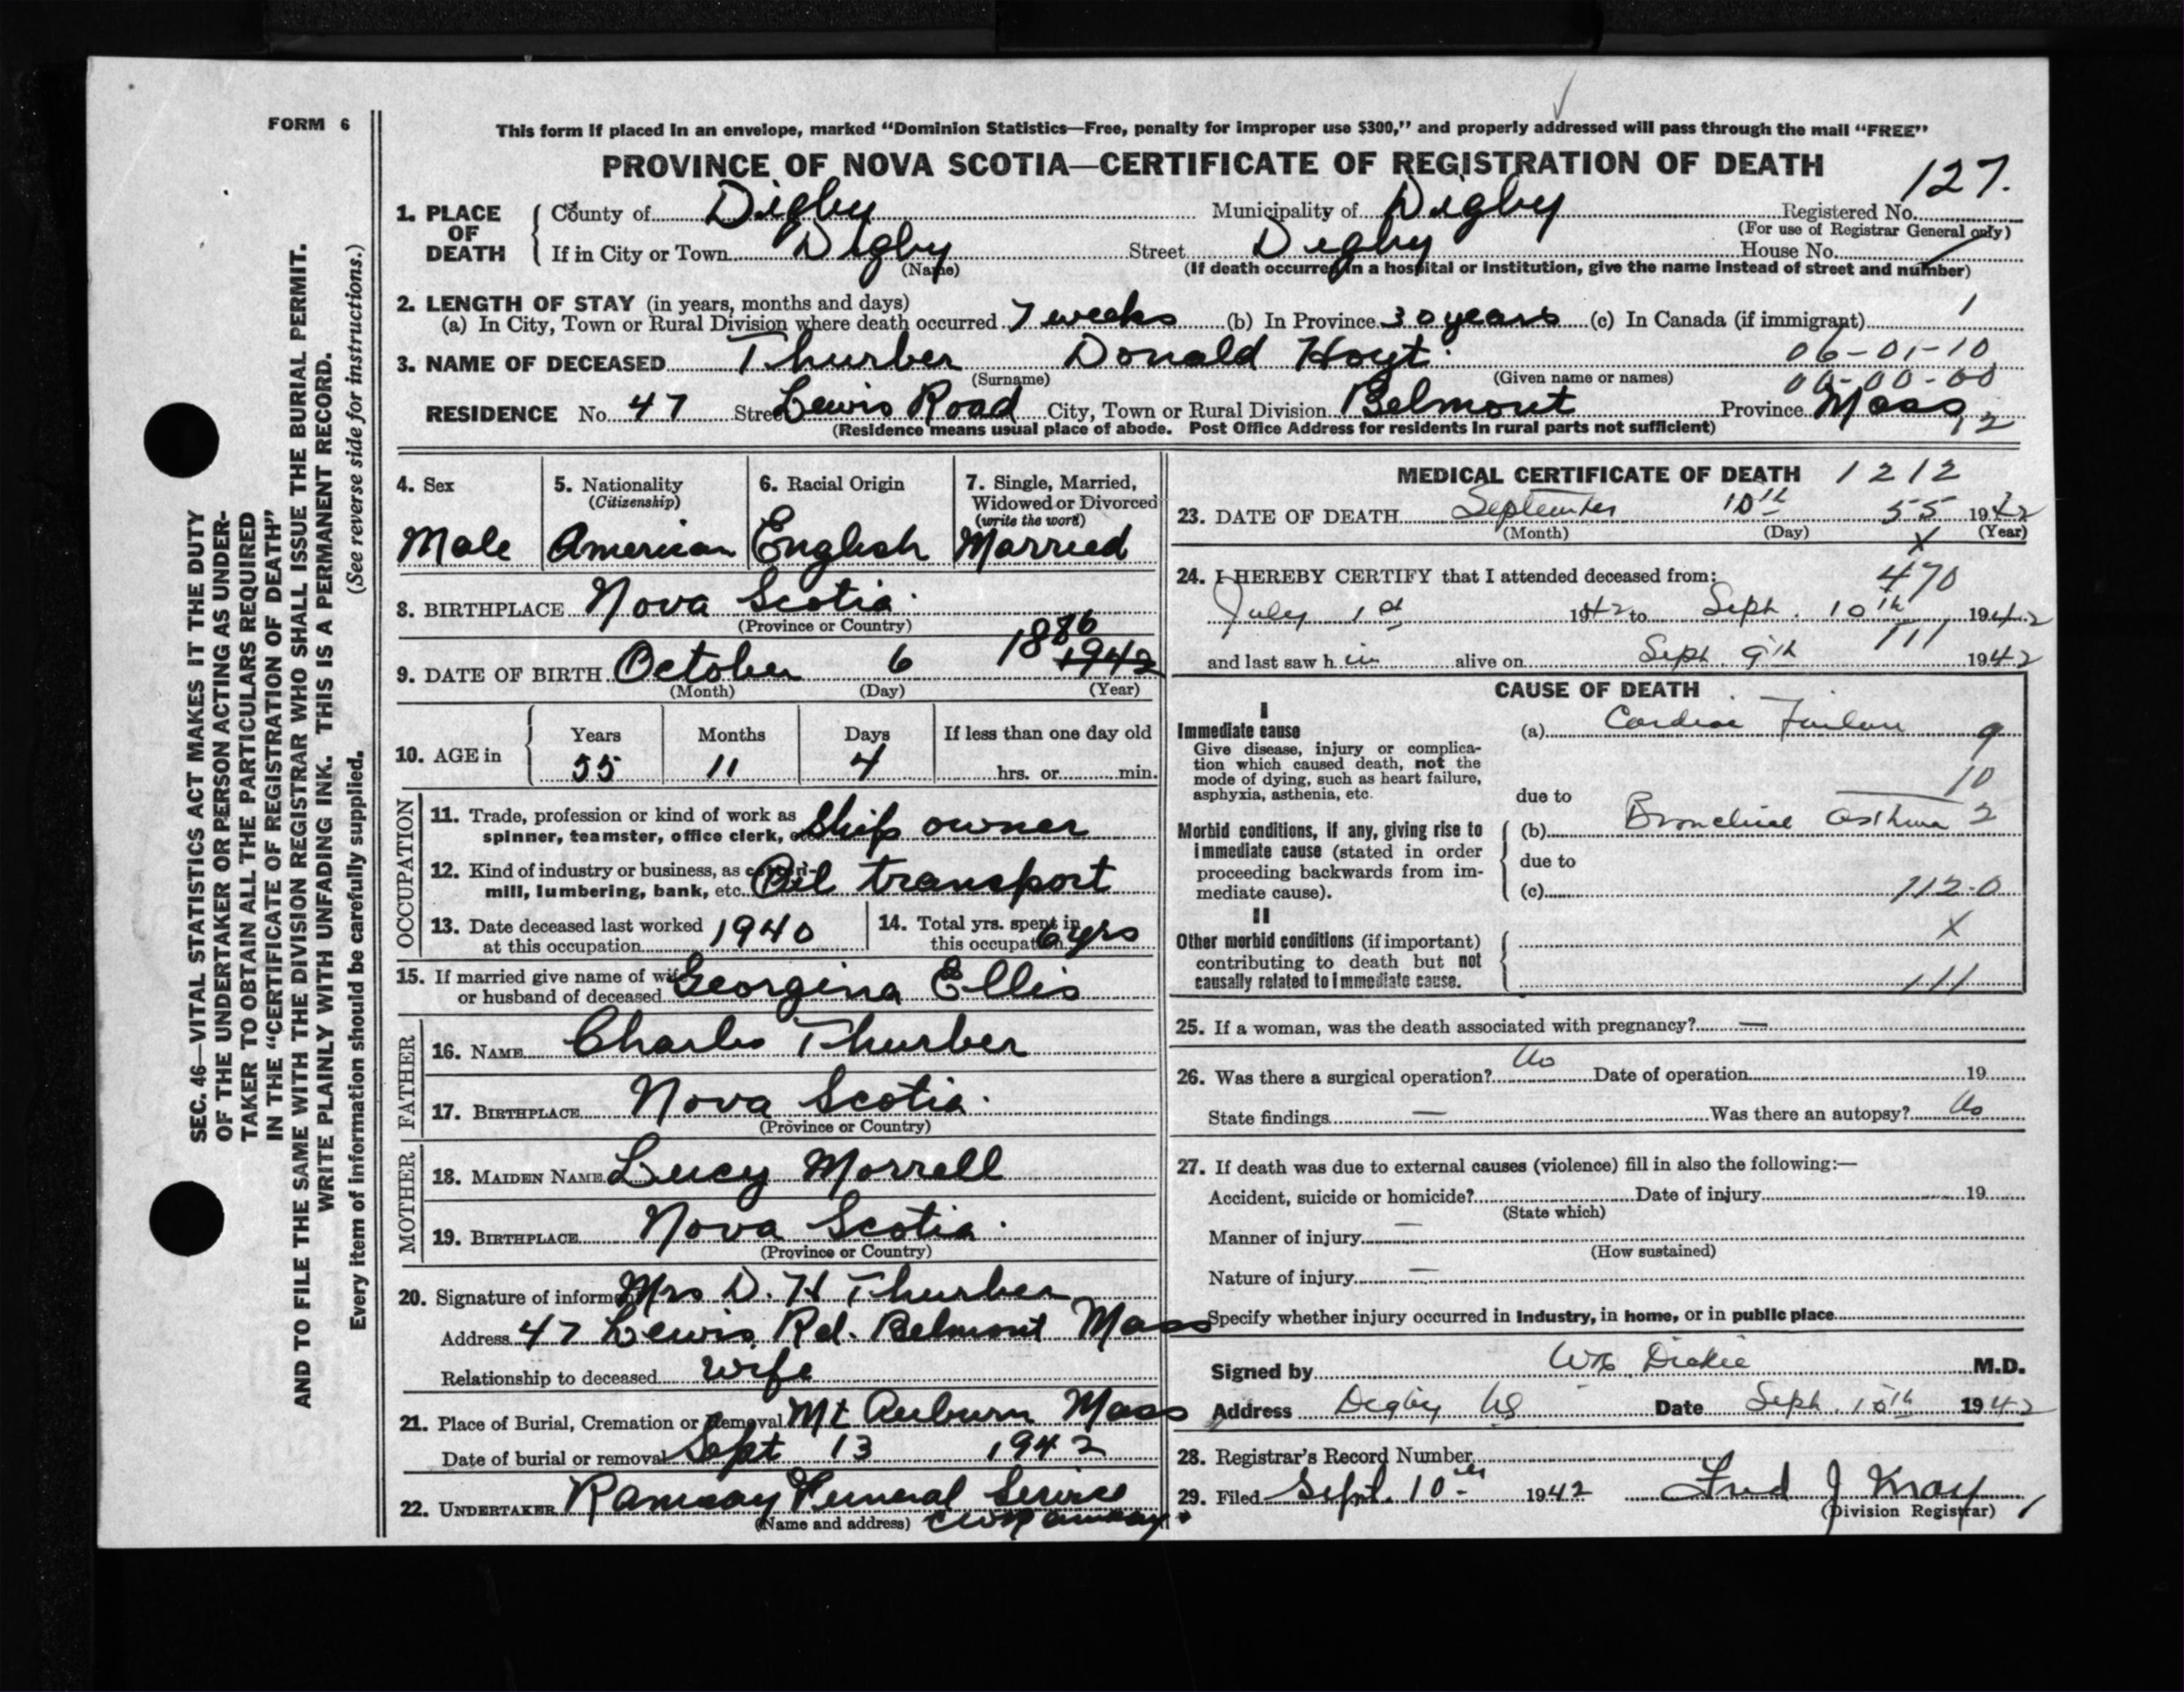 FORM 6
This form if placed in an envelope, marked “Dominion Statistics—Free, penalty for improper use $300,” and properly addressed will pass through the mail “FREE”
PROVINCE OF NOVA SCOTIA—CERTIFICATE OF REGISTRATION OF DEATH
127.
1. PLACE OF DEATH County of Digby Municipality of Digby Registered No.
(For use of Registrar General only)
If in City or Town Digby Street Digby House No.
(Name) (If death occurred in a hospital or institution, give the name instead of street and number)
2. LENGTH OF STAY (in years, months and days)
(a) In City, Town or Rural Division where death occurred 7 weeks (b) In Province 30 years (c) In Canada (if immigrant) 1
3. NAME OF DECEASED Thurber Donald Hoyt. 06-01-10
(Surname) (Given name or names) 06-00-00
RESIDENCE No. 47 Street Lewis Road City, Town or Rural Division Belmont Province Mass, 2
(Residence means usual place of abode. Post Office Address for residents in rural parts not sufficient)
4. Sex
Male
5. Nationality
(Citizenship)
American
6. Racial Origin
English
7. Single, Married, Widowed or Divorced
(write the word)
Married
8. BIRTHPLACE Nova Scotia.
(Province or Country)
9. DATE OF BIRTH October 6 1886 1942
(Month) (Day) (Year)
10. AGE in Years Months Days If less than one day old
55 11 4 hrs. or min.
OCCUPATION
11. Trade, profession or kind of work as
spinner, teamster, office clerk, etc. Ship owner
12. Kind of industry or business, as cotton-
mill, lumbering, bank, etc. Oil transport
13. Date deceased last worked
at this occupation 1940
14. Total yrs. spent in
this occupation 6 yrs
15. If married give name of wife
or husband of deceased Georgina Ellis
FATHER
16. NAME Charles Thurber
17. BIRTHPLACE Nova Scotia.
(Province or Country)
MOTHER
18. MAIDEN NAME Lucy Morrell
19. BIRTHPLACE Nova Scotia.
(Province or Country)
20. Signature of informant Mrs D. H Thurber
Address 47 Lewis Rd. Belmont Mass
Relationship to deceased wife
21. Place of Burial, Cremation or Removal Mt Auburn Mass
Date of burial or removal Sept 13 1942
22. UNDERTAKER Ramsay Funeral Service
(Name and address)
MEDICAL CERTIFICATE OF DEATH 1212
23. DATE OF DEATH September 10th 55 1942
(Month) (Day) X (Year)
24. I HEREBY CERTIFY that I attended deceased from: 470
July 1st 1942 to Sept. 10th 1942
111
and last saw h im alive on Sept. 9th 1942
CAUSE OF DEATH
I
Immediate cause
Give disease, injury or complica-
tion which caused death, not the
mode of dying, such as heart failure,
asphyxia, asthenia, etc.
(a) Cardiac Failure 9
10
due to
Morbid conditions, if any, giving rise to
immediate cause (stated in order
proceeding backwards from im-
mediate cause).
(b) Bronchial Asthma 2
due to
(c) 112-0
II
Other morbid conditions (if important)
contributing to death but not
causally related to immediate cause.
X
111
25. If a woman, was the death associated with pregnancy? —
26. Was there a surgical operation? No Date of operation 19
State findings — Was there an autopsy? No
27. If death was due to external causes (violence) fill in also the following:—
Accident, suicide or homicide? Date of injury 19
(State which)
Manner of injury —
(How sustained)
Nature of injury —
Specify whether injury occurred in industry, in home, or in public place
Signed by Dickie M.D.
Address Digby NS Date Sept. 10th 1942
28. Registrar's Record Number
29. Filed Sept. 10th 1942 Fred J
(Division Registrar)
SEC. 46—VITAL STATISTICS ACT MAKES IT THE DUTY
OF THE UNDERTAKER OR PERSON ACTING AS UNDER-
TAKER TO OBTAIN ALL THE PARTICULARS REQUIRED
IN THE “CERTIFICATE OF REGISTRATION OF DEATH”
AND TO FILE THE SAME WITH THE DIVISION REGISTRAR WHO SHALL ISSUE THE BURIAL PERMIT.
WRITE PLAINLY WITH UNFADING INK. THIS IS A PERMANENT RECORD.
Every item of information should be carefully supplied. (See reverse side for instructions.)